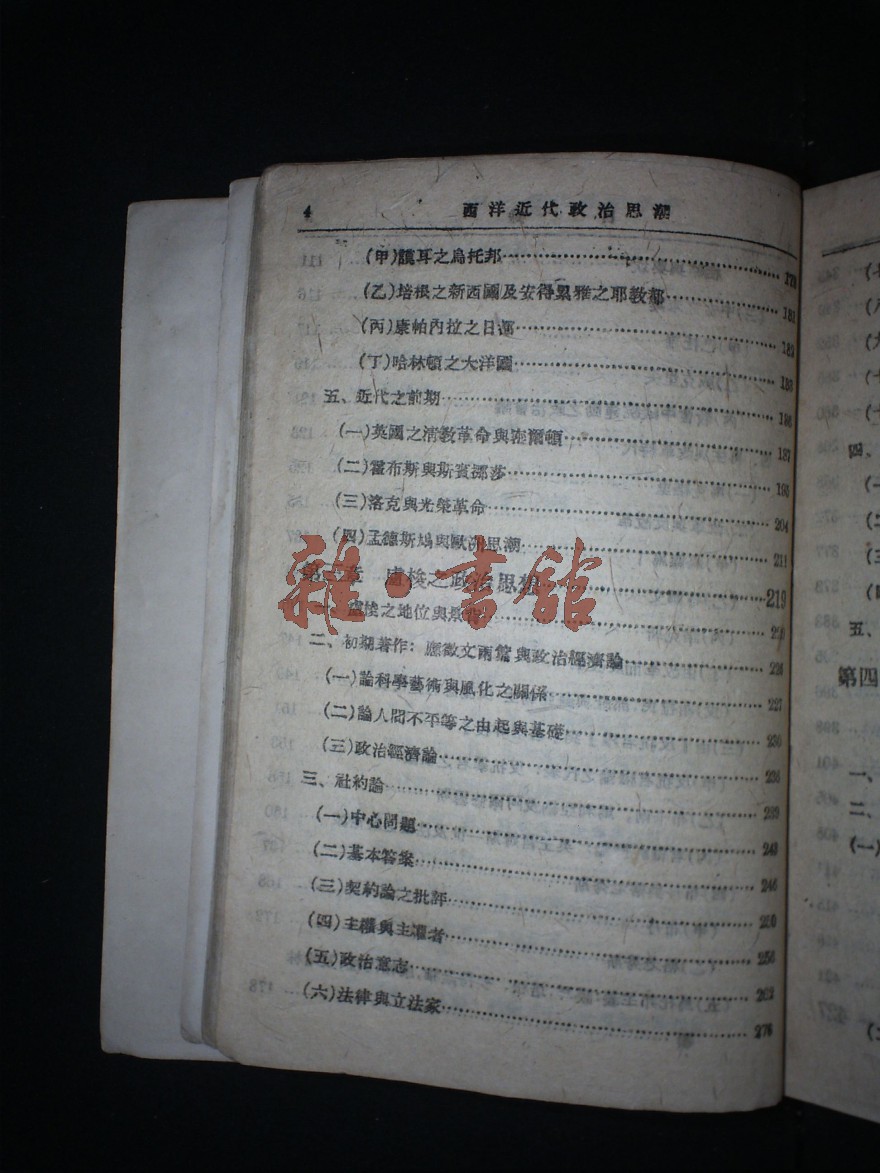 4 西洋近代政治思潮
(甲)謨耳之烏托邦 179
(乙)培根之新西國及安得累雅之耶教都 181
(丙)康帕內拉之日都 182
(丁)哈林頓之大洋國 183
五、近代之前期 186
(一)英國之清教革命與密爾頓 187
(二)霍布斯與斯賓挪莎 195
(三)洛克與光榮革命 204
(四)孟德斯鳩與歐洲思潮 211
第 章 盧梭之政治思想 219
盧梭之地位與 220
二、初期著作:應徵文兩篇與政治經濟論 226
(一)論科學藝術與風化之關係 227
(二)論人間不平等之由起與基礎 230
(三)政治經濟論
三、社約論 239
(一)中心問題 243
(二)基本答案 246
(三)契約論之批評 250
(四)主權與主權者 256
(五)政治意志 262
(六)法律與立法家 276
雜·書館
四、
五、
第四
一、
二、
(一)